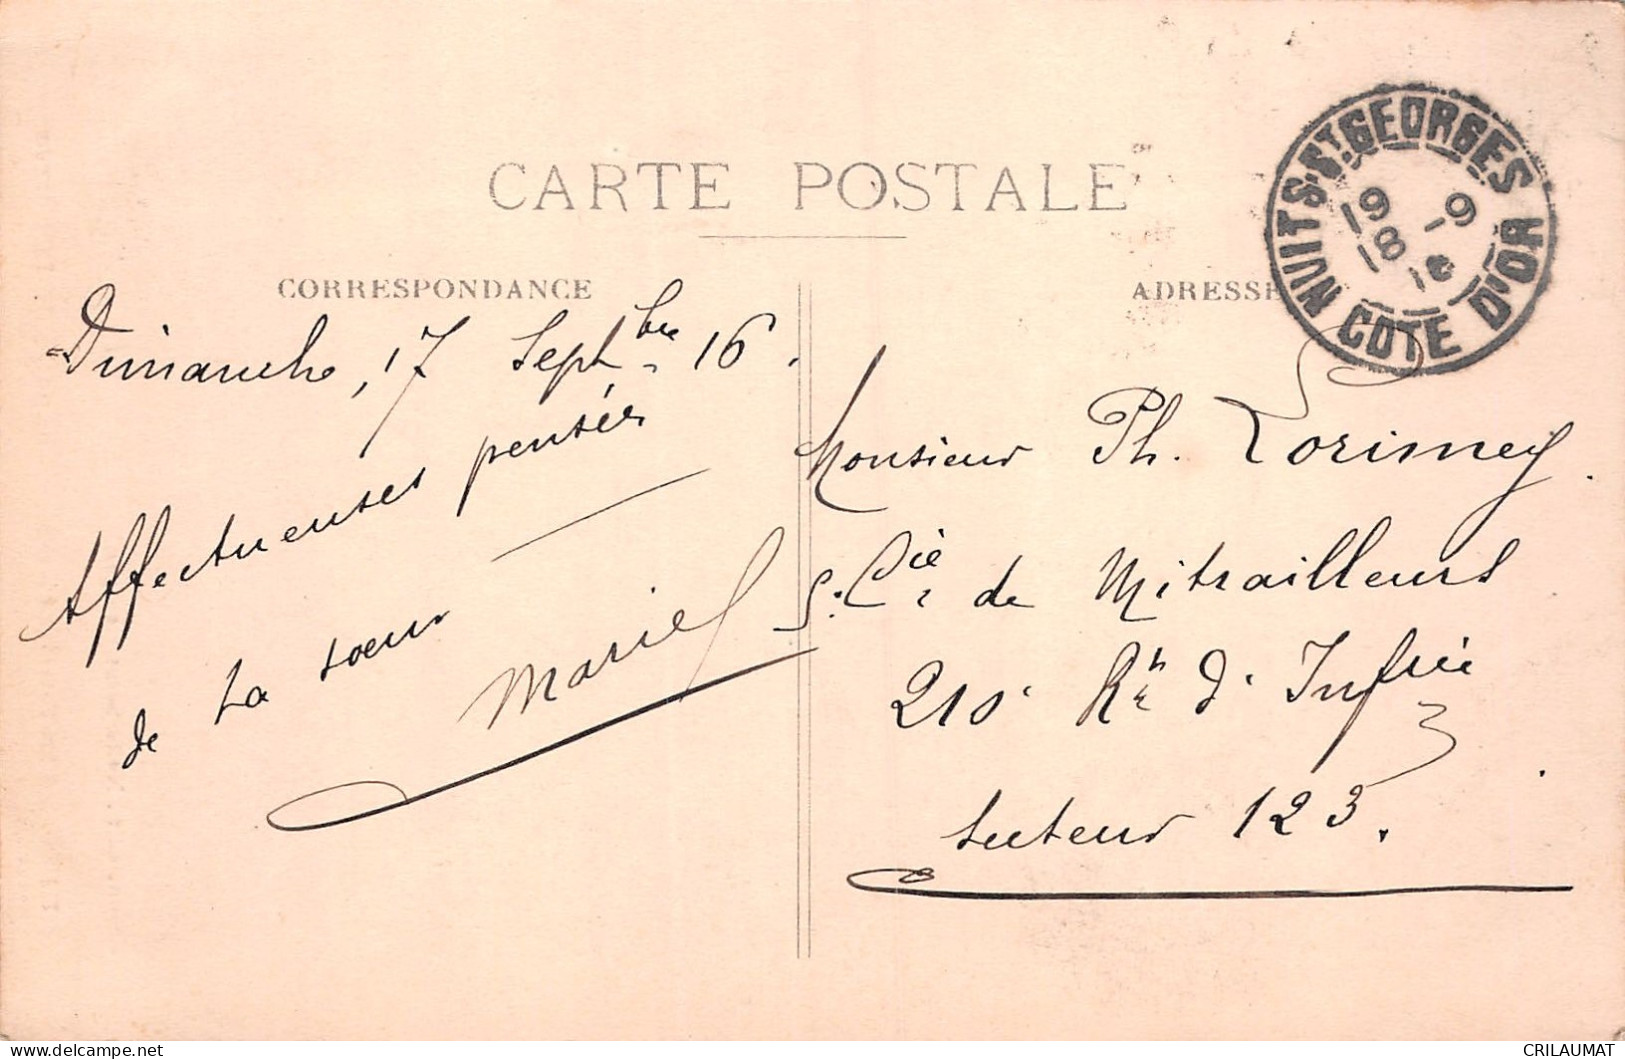 CARTE POSTALE
CORRESPONDANCE
ADRESSE
NUITS-St GEORGES
19 -9
18
COTE D'OR
Dimanche, 17 Septbre 16.
Affectueuses pensées
de ta soeur
Marie
Monsieur Ph. Lorimey.
Cie de Mitrailleurs
210e Rt d'Infrie
Secteur 123.
CRILAUMAT